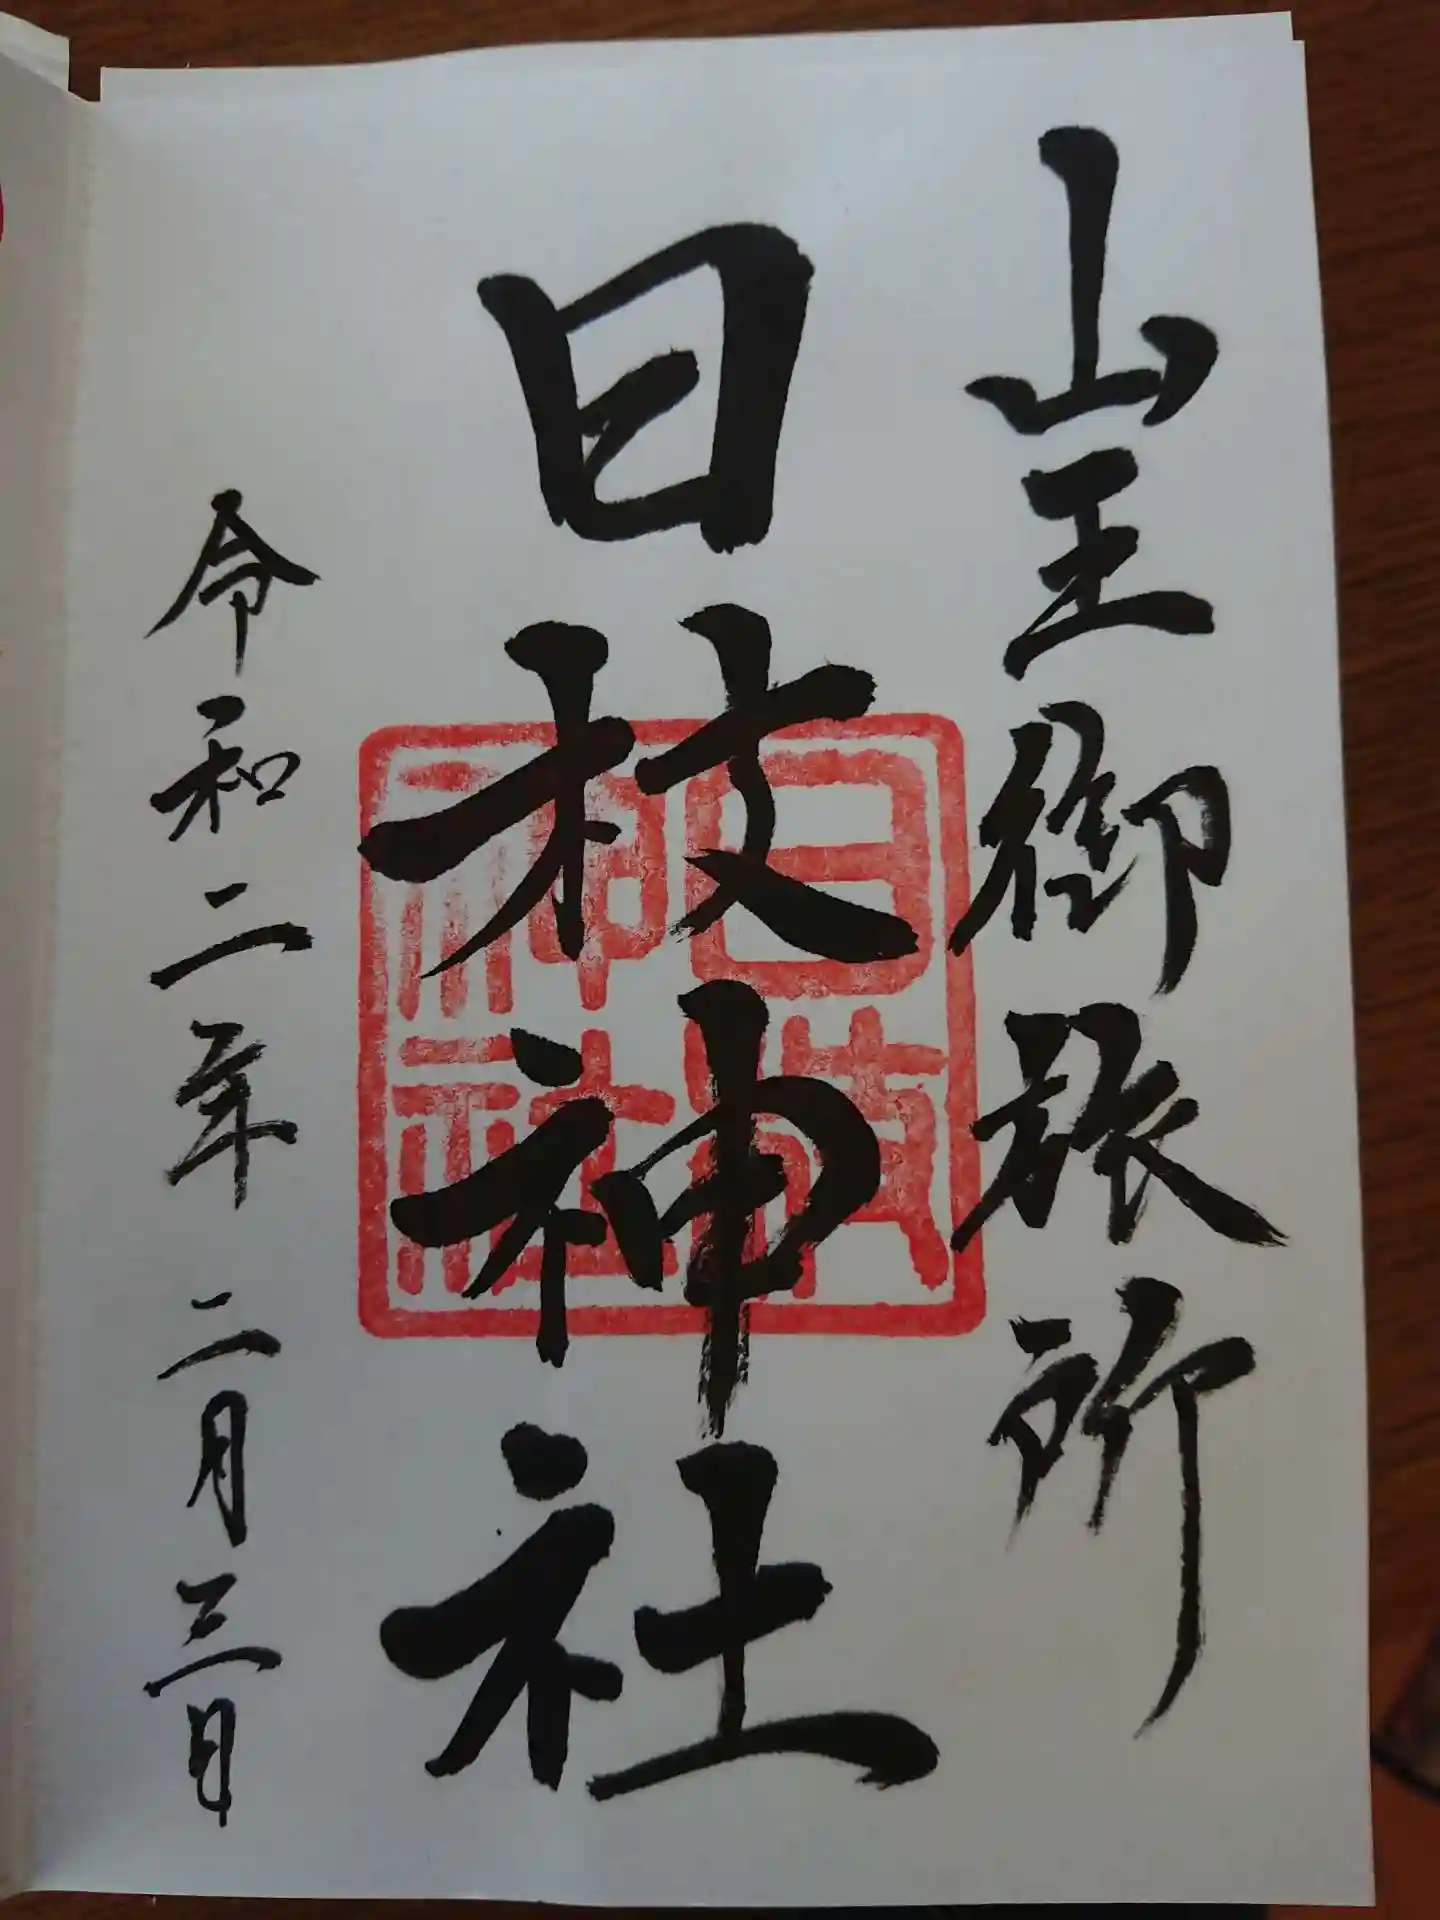 山王御旅所
日枝神社
日枝神社
令和二年 二月三日